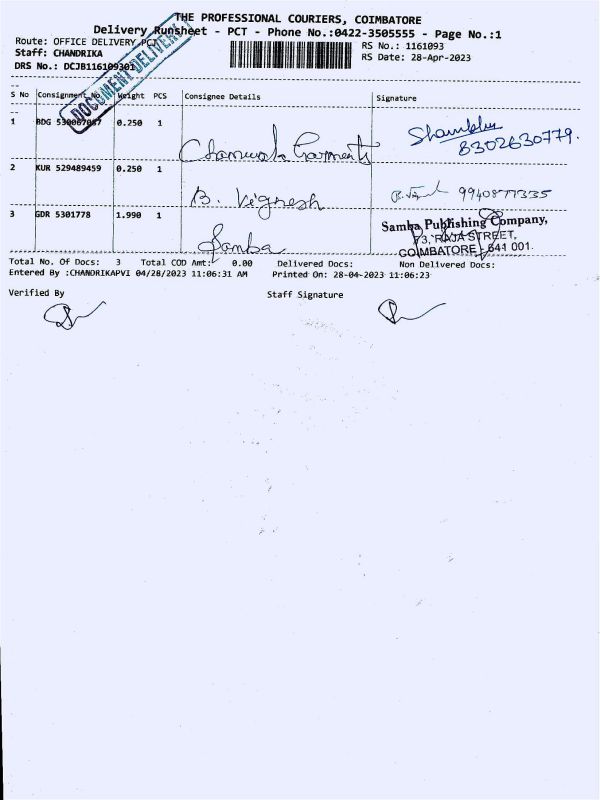 THE PROFESSIONAL COURIERS, COIMBATORE
Delivery Runsheet - PCT - Phone No.:0422-3505555 - Page No.:1
Route: OFFICE DELIVERY PCT
RS No.: 1161093
Staff: CHANDRIKA
RS Date: 28-Apr-2023
DRS No.: DCJB116109301
DOCUMENT DELIVERY
S No Consignment No Weight PCS Consignee Details Signature
1 BDG 530067067 0.250 1 Garments Shambhu
8302630779.
2 KUR 529489459 0.250 1 B. Vignesh 9940877335
3 GDR 5301778 1.990 1 Samba
Samba Publishing Company,
73, RAJA STREET,
COIMBATORE - 641 001.
Total No. Of Docs: 3 Total COD Amt: 0.00 Delivered Docs: Non Delivered Docs:
Entered By :CHANDRIKAPVI 04/28/2023 11:06:31 AM Printed On: 28-04-2023 11:06:23
Verified By Staff Signature